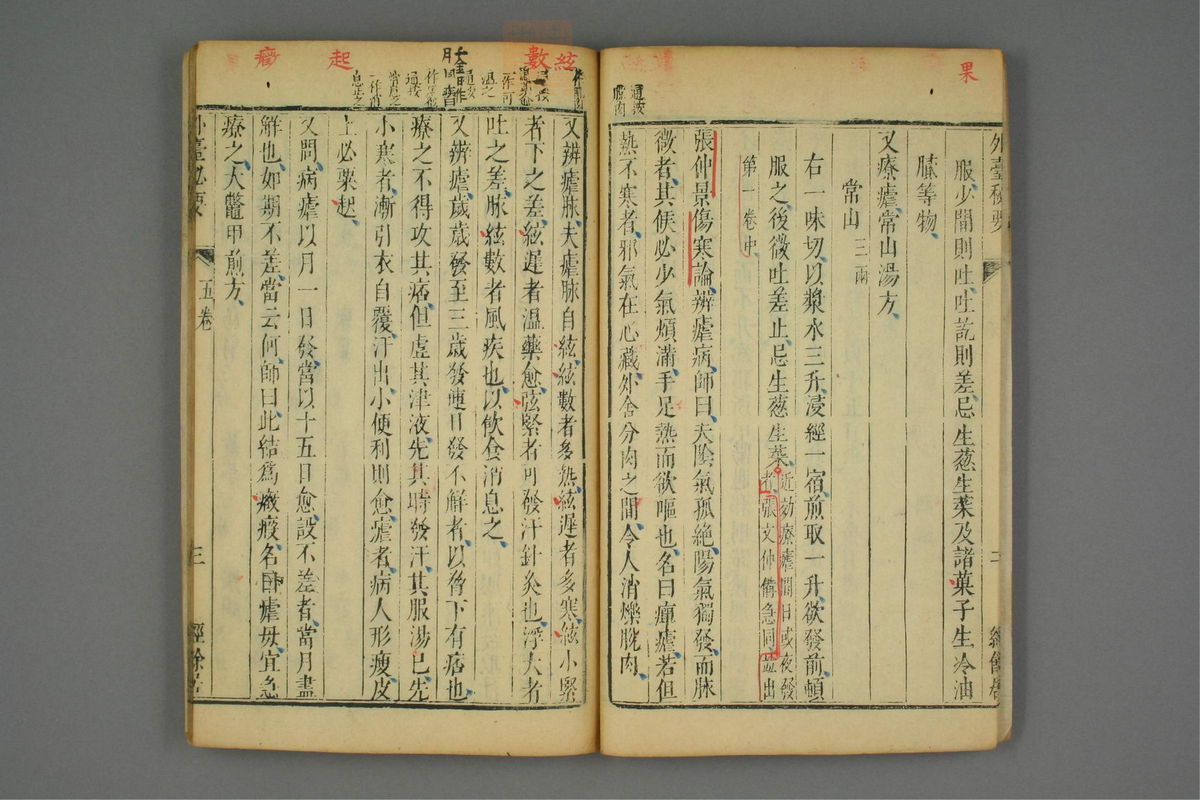 果
外臺秘要
服少間則吐吐訖則差忌生葱生菜及諸菓子生冷油
膩等物
又療瘧常山湯方
常山三兩
右一味切以漿水三升浸經一宿煎取一升欲發前頓
服之後微吐差止忌生葱生菜近効療瘧間日或夜發
者張文仲備急同並出
第一卷中
張仲景傷寒論辨瘧病師曰夫陰氣孤絶陽氣獨發而脉
微者其候必少氣煩滿手足熱而欲嘔也名曰癉瘧若但
熱不寒者邪氣在心藏外舍分肉之間令人消爍脫肉
絃
數
起
癥
又辨瘧脉夫瘧脉自絃絃數者多熱絃遲者多寒絃小緊
者下之差絃遲者溫藥愈弦緊者可發汗針灸也浮大者
吐之差脉絃數者風疾也以飲食消息之
又辨瘧歲歲發至三歲發連日發不解者以脅下有痞也
療之不得攻其痞但虛其津液先其時發汗其服湯已先
小寒者漸引衣自覆汗出小便利則愈瘧者病人形瘦皮
上必粟起
又問病瘧以月一日發當以十五日愈設不差者當月盡
解也如期不差當云何師曰此結爲癥瘕名曰瘧母宜急
療之大鼈甲煎方
外臺秘要
五卷
三
經餘居